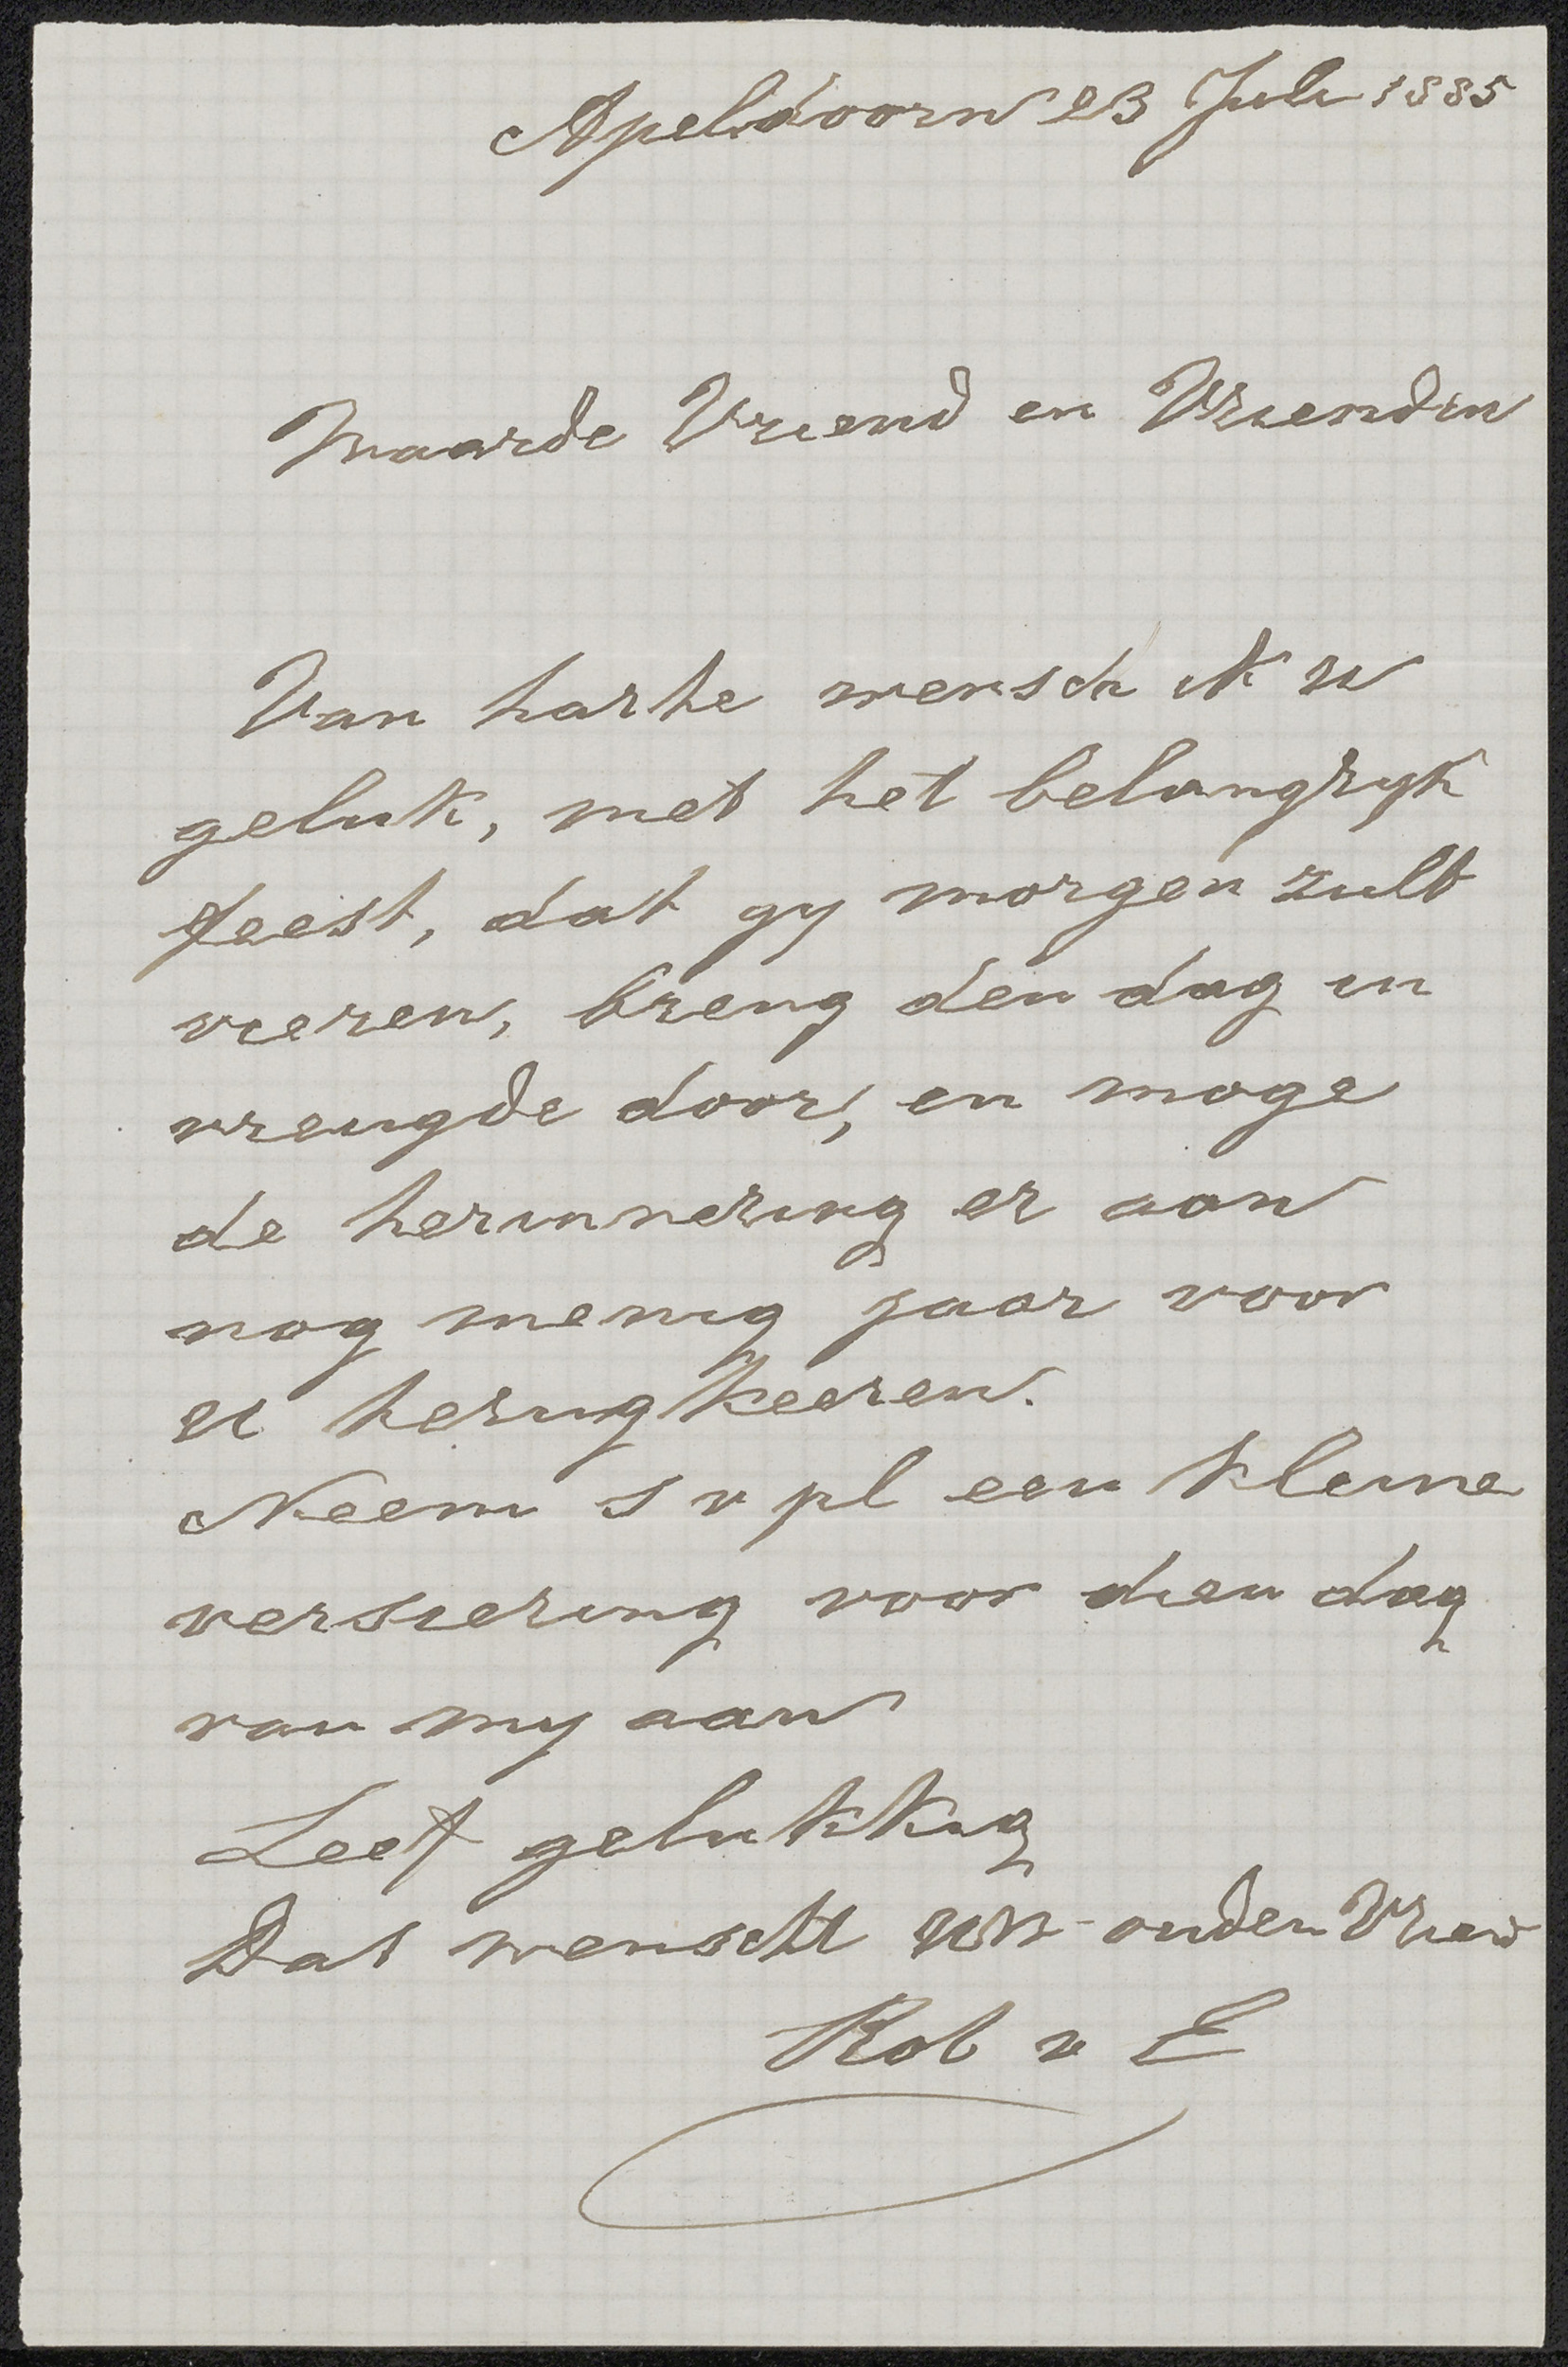 Apeldoorn 23 Juli 1885
Waarde Vriend en Vriendin
Van harte wensch ik u
geluk, met het belangryk
feest, dat gy morgen zult
vieren, breng den dag in
vreugde door, en moge
de herinnering er aan
nog menig jaar voor
u terugkeeren.
Neem s v pl een kleine
versiering voor dien dag
van my aan
Leef gelukkig
Dat wenscht uw ouden Vriend
Rob v E